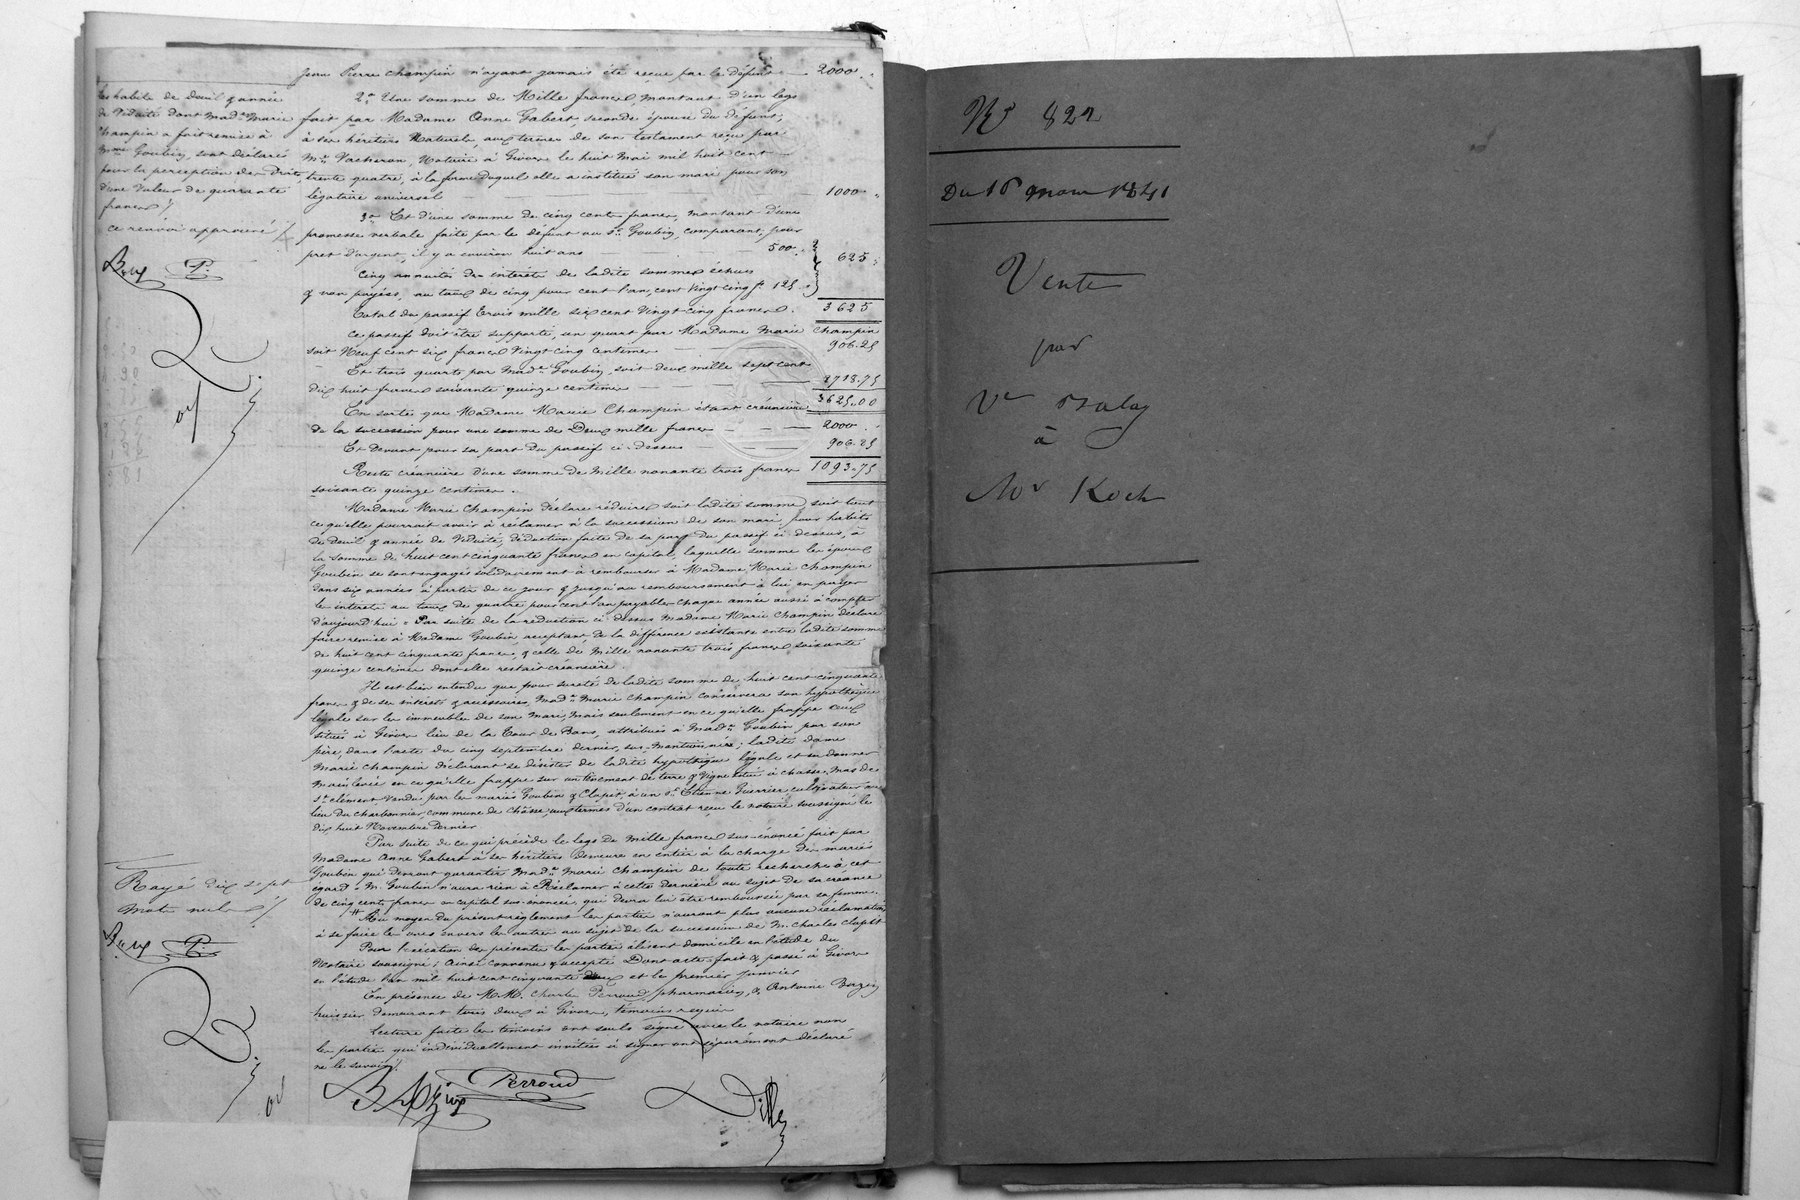 Jean Pierre Champin n'ayant jamais été reçue par le défunt — 2000 "
2° Une somme de Mille francs, montant d'un legs
fait par Madame Anne Gabert, seconde épouse du défunt,
à ses héritiers Naturels, aux termes de son testament reçu par
Me Vacheron, Notaire à Givors le huit Mai mil huit cent
trente quatre, à la forme duquel elle a institué son mari pour son
légataire universel — 1000 "
3° Et d'une somme de cinq cents francs, montant d'une
promesse verbale faite par le défunt au Sr Goubin, comparant, pour
prêt d'argent, il y a environ huit ans — 500 "
625 "
Cinq annuités des intérêts de ladite somme échus
& non payés, au taux de cinq pour cent l'an, cent vingt cinq f. 125 "
Total du passif trois mille six cent vingt cinq francs. 3625
Ce passif doit être supporté, un quart par Madame Marie Champin
soit Neuf cent six francs vingt cinq centimes — 906.25
Et trois quarts par Made Goubin, soit deux mille sept cent
dix huit francs soixante quinze centimes — 2718.75
3625.00
En sorte que Madame Marie Champin étant créancière
de la succession pour une somme de Deux mille francs — 2000 "
Et Devant pour sa part du passif ci-dessus — 906.25
Reste créancière d'une somme de Mille nonante trois francs 1093.75
soixante quinze centimes.
Madame Marie Champin déclare réduire soit ladite somme, soit tout
ce qu'elle pourrait avoir à réclamer à la succession de son mari, pour habits
de deuil & année de Viduité, déduction faite de sa part du passif ci-dessus, à
la somme de huit cent cinquante francs en capital, laquelle somme les époux
Goubin se sont engagés solidairement à rembourser à Madame Marie Champin
dans six années à partir de ce jour & jusqu'au remboursement à lui en payer
les intérêts au taux de quatre pour cent l'an payables chaque année aussi à compter
d'aujourd'hui. Par suite de la réduction ci-dessus Madame Marie Champin déclare
faire remise à Madame Goubin acceptant, de la différence existante entre ladite somme
de huit cent cinquante francs, & celle de Mille nonante trois francs soixante
quinze centimes dont elle restait créancière.
Il est bien entendu que pour sureté de ladite somme de huit cent cinquante
francs & de ses intérêts & accessoires, Made Marie Champin conservera son hypothèque
légale sur les immeubles de son Mari, Mais seulement en ce qu'elle frappe ceux
situés à Givors lieu de la Tour de Bans, attribués à Made Goubin par son
père, dans l'acte du cinq septembre dernier, sus-mentionné; ladite dame
Marie Champin déclarant se désister de ladite hypothèque légale et en donner
Mainlevée en ce qu'elle frappe sur un tènement de terre & vigne situé à chasse, mas de
St Clément vendu par les mariés Goubin & Clapit, à un Sr Etienne Guerrier, cultivateur au
lieu du Charbonnier, commune de Chasse, aux termes d'un contrat reçu le notaire soussigné le
dix huit Novembre dernier
Par suite de ce qui précède le legs de mille francs sus-énoncé fait par
Madame Anne Gabert à ses héritiers demeure en entier à la charge des mariés
Goubin qui devront garantir Made Marie Champin de toute recherche à cet
égard. M. Goubin n'aura rien à Réclamer à cette dernière au sujet de sa créance
de cinq cents francs en capital sus-énoncée, qui devra lui être remboursée par sa femme.
Au moyen du présent règlement les parties n'auront plus aucune réclamation
à se faire les unes envers les autres au sujet de la succession de M. Charles Clapit
Pour l'exécution des présentes les parties élisent domicile en l'étude du
Notaire soussigné; Ainsi convenu & accepté. Dont acte fait & passé à Givors
en l'étude l'an mil huit cent cinquante deux et le premier janvier
En présence de M.M. Charles Perroud, pharmacien, & Antoine Bazin
huissier, demeurant tous deux à Givors, témoins requis
Lecture faite les témoins ont seuls signé avec le notaire non
les parties qui individuellement invitées à signer ont séparément déclaré
ne le savoir.
Bazin Perroud
Les habits de deuil & année
de Viduité dont Made Marie
Champin a fait remise à
Mme Goubin, sont déclarés
pour la perception des Droits,
d'une valeur de quarante
francs /
ce renvoi approuvé /
P.
Rayé dix sept
mots nuls /
P.
No 822
Du 16 mars 1841
Vente
par
Ve Balay
à
Mr Koch